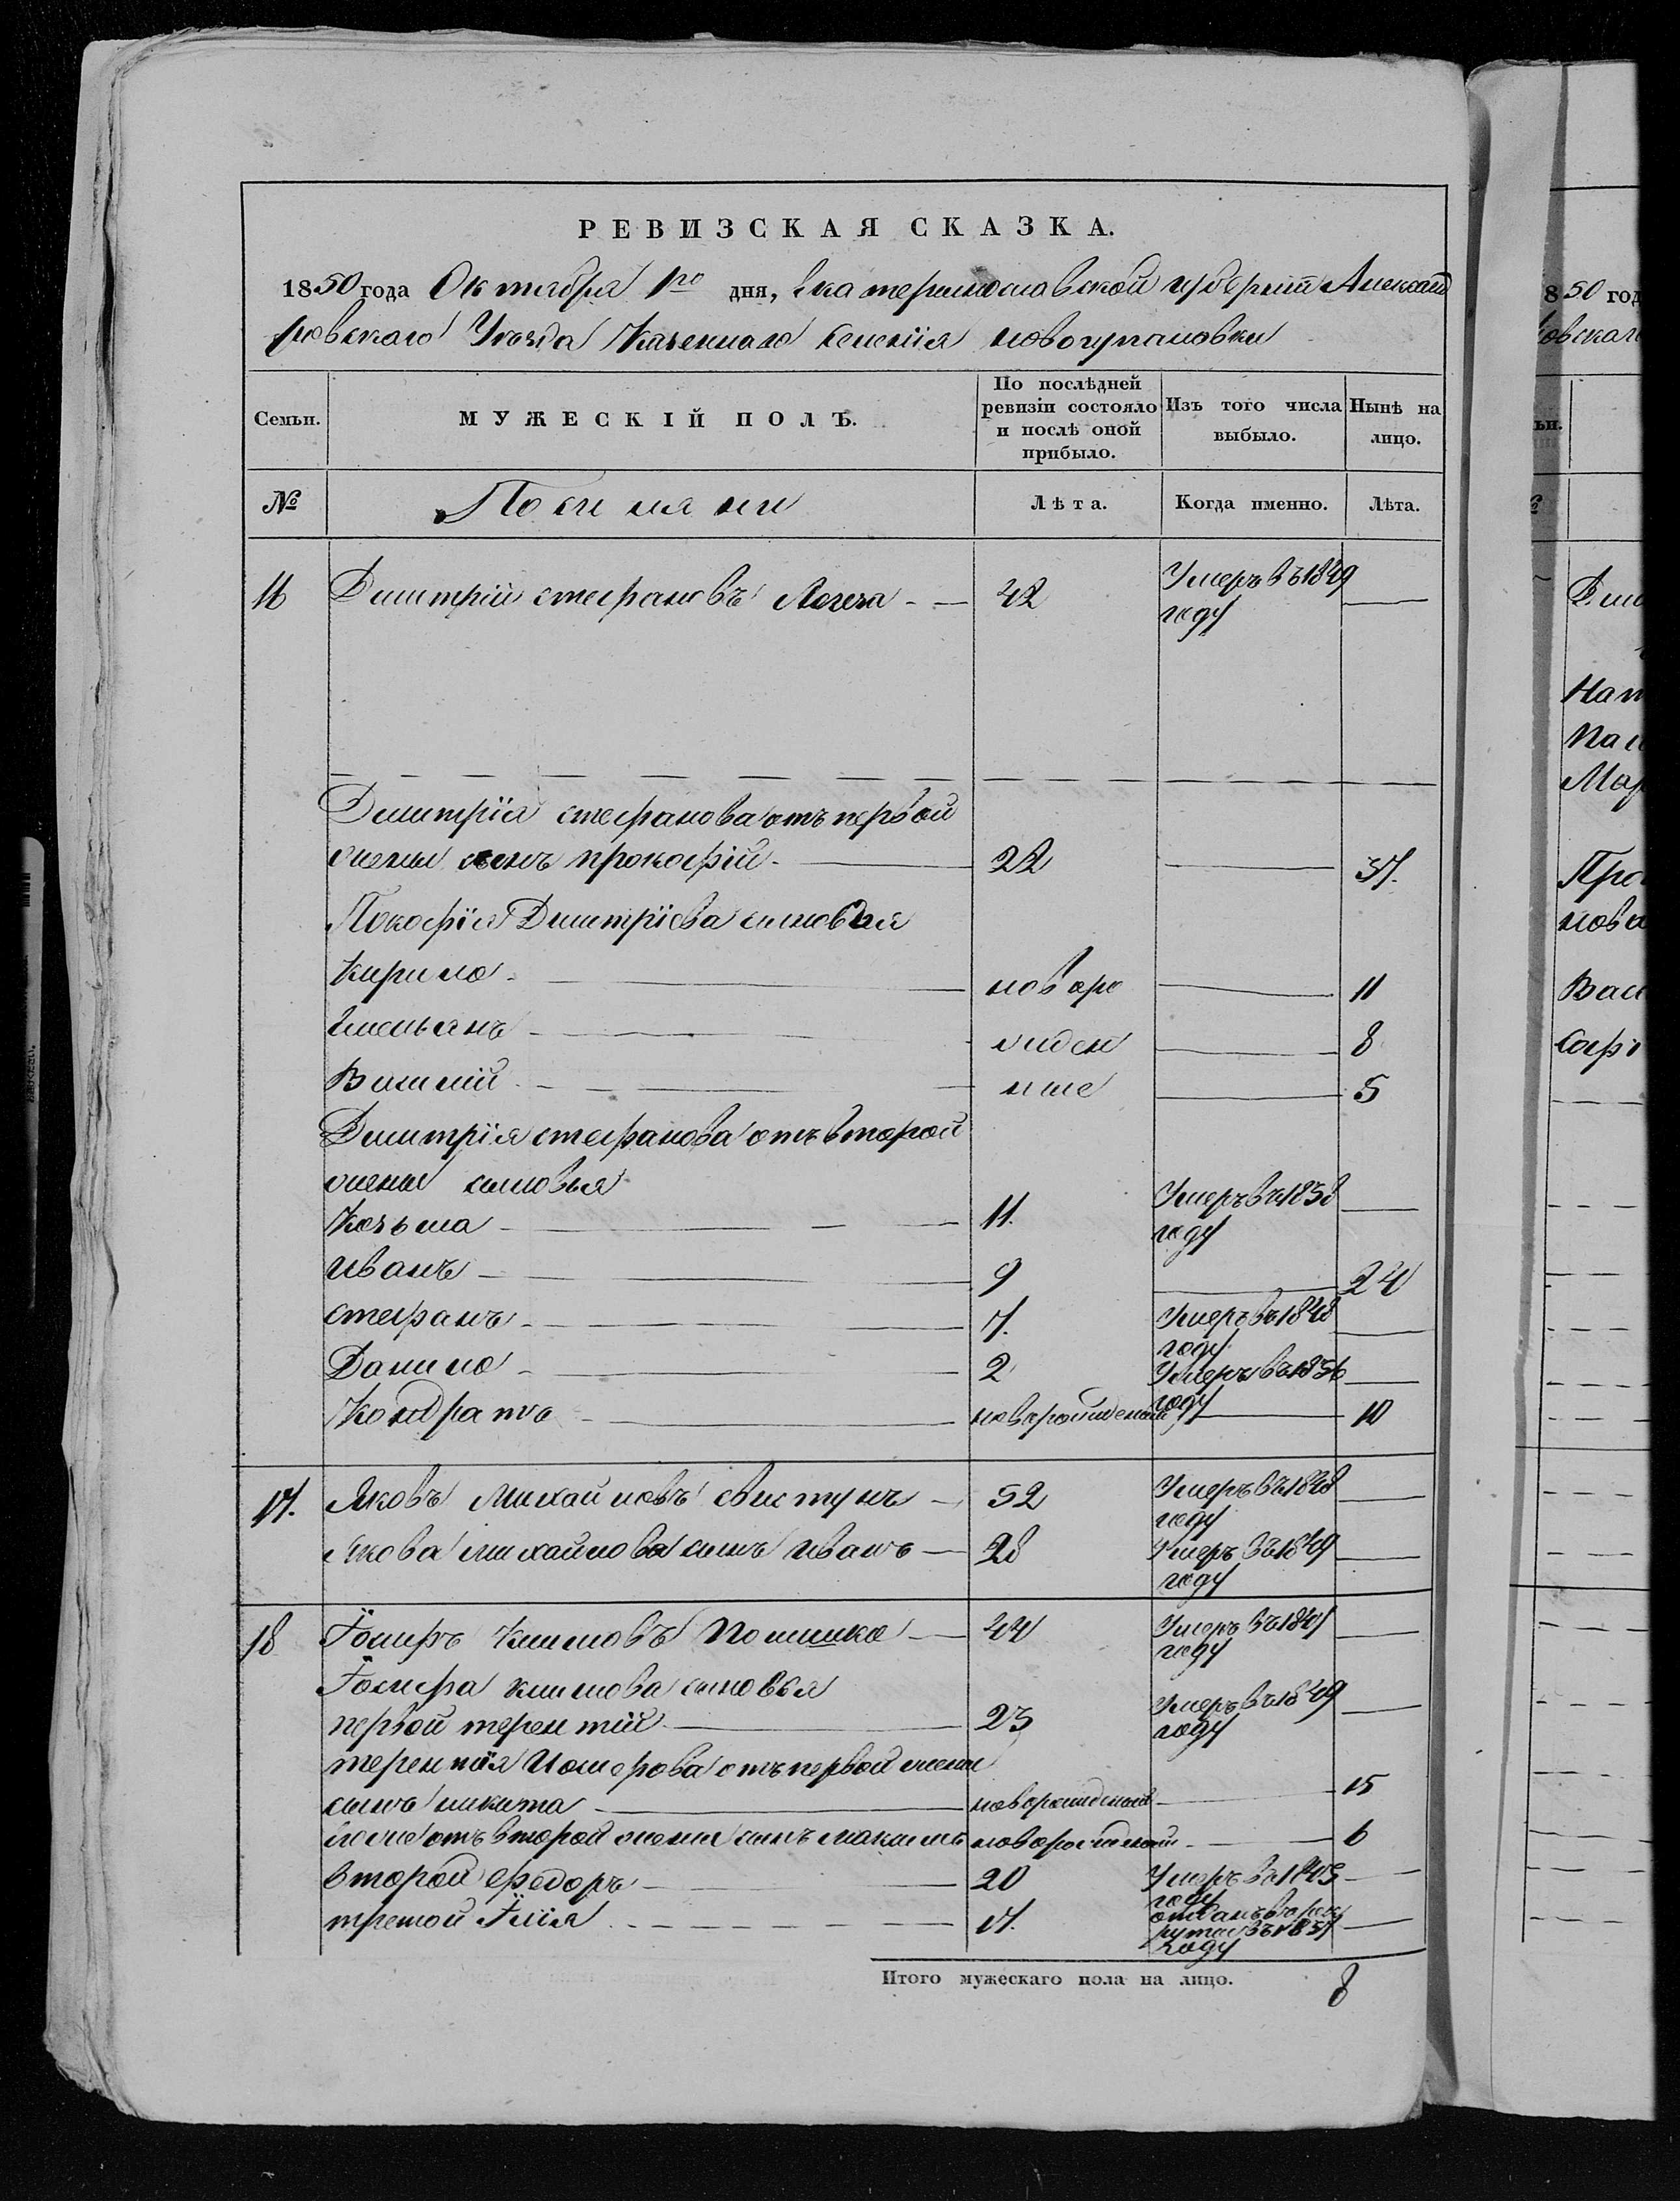 РЕВИЗСКАЯ СКАЗКА.
1850 года Октября 1го дня, Екатеринославской губерніи Александ
ровскаго Уезда Казеннаго Селенія новогупаловки
Семьи. МУЖЕСКІЙ ПОЛЪ. По послѣдней ревизіи состояло и послѣ оной прибыло. Изъ того числа выбыло. Ныиѣ на лицо.
№ Поселяни Лѣта. Когда именно. Лѣта.
16 Дмитрій стефановъ 42 Умеръ въ 1849
году
Дмитрія стефанова отъ первой
жены сынъ прокофій 22 37.
Покофія Дмитріева сыновья
Кирило новоро 11
Емельянъ жден 8
Василій ные 5
Дмитрія стефанова отъ второй
жены сыновья
Козьма 11. Умеръ въ 1838
году
иванъ 9 24
стефанъ 7. Умеръ въ 1848
году
Данило 2 Умеръ въ 1836
году
Кондратъ новорожденый 10
17. Яковъ Михайловъ свистунъ 52 Умеръ въ 1848
году
Якова михайлова сынъ иванъ 28 Умеръ въ 1849
году
18 Іосифъ климовъ 44 Умеръ въ 1847
году
Іосифа климова сыновья
первой терентій 23 Умеръ въ 1849
году
терентія Иосифова отъ первой жены
сынъ никита новорожденой 15
егоже отъ второй жены сынъ максимъ новорожденой 6
второй федоръ 20 Умеръ въ 1845
году
третой Ілія 17. отданъ в рек
рути въ 1837
году
Итого мужескаго пола на лицо. 8
8 50 год
овскаго
ьи.
Дми
Нат
Пал
Мар
Про
нова
Васи
Соф